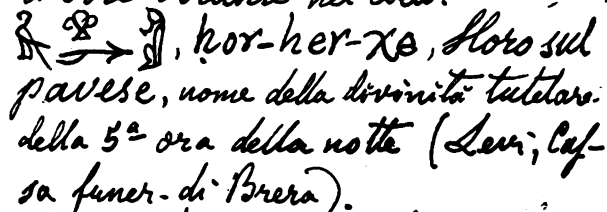 , hor-her-χe, Horo sul
pavese, nome della divinità tutelare
della 5ª ora della notte (Levi, Cas-
sa funer. di Brera).